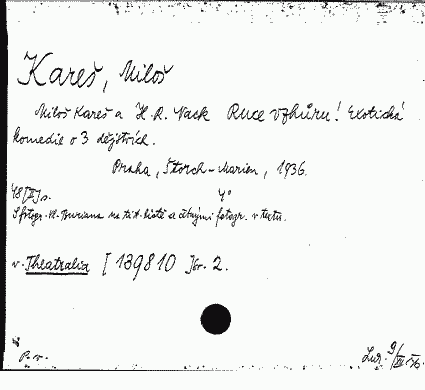 Kareš, Miloš
Miloš Kareš a H. R. Vack Ruce vzhůru! Exotická
komedie o 3 dějstvích.
Praha, Štorch-Marien, 1936.
48 [II] s. 4°
S fotogr. Vl. na tit. listě a četnými fotogr. v textu.
v Theatralia [139810] č. 2.
P. v.